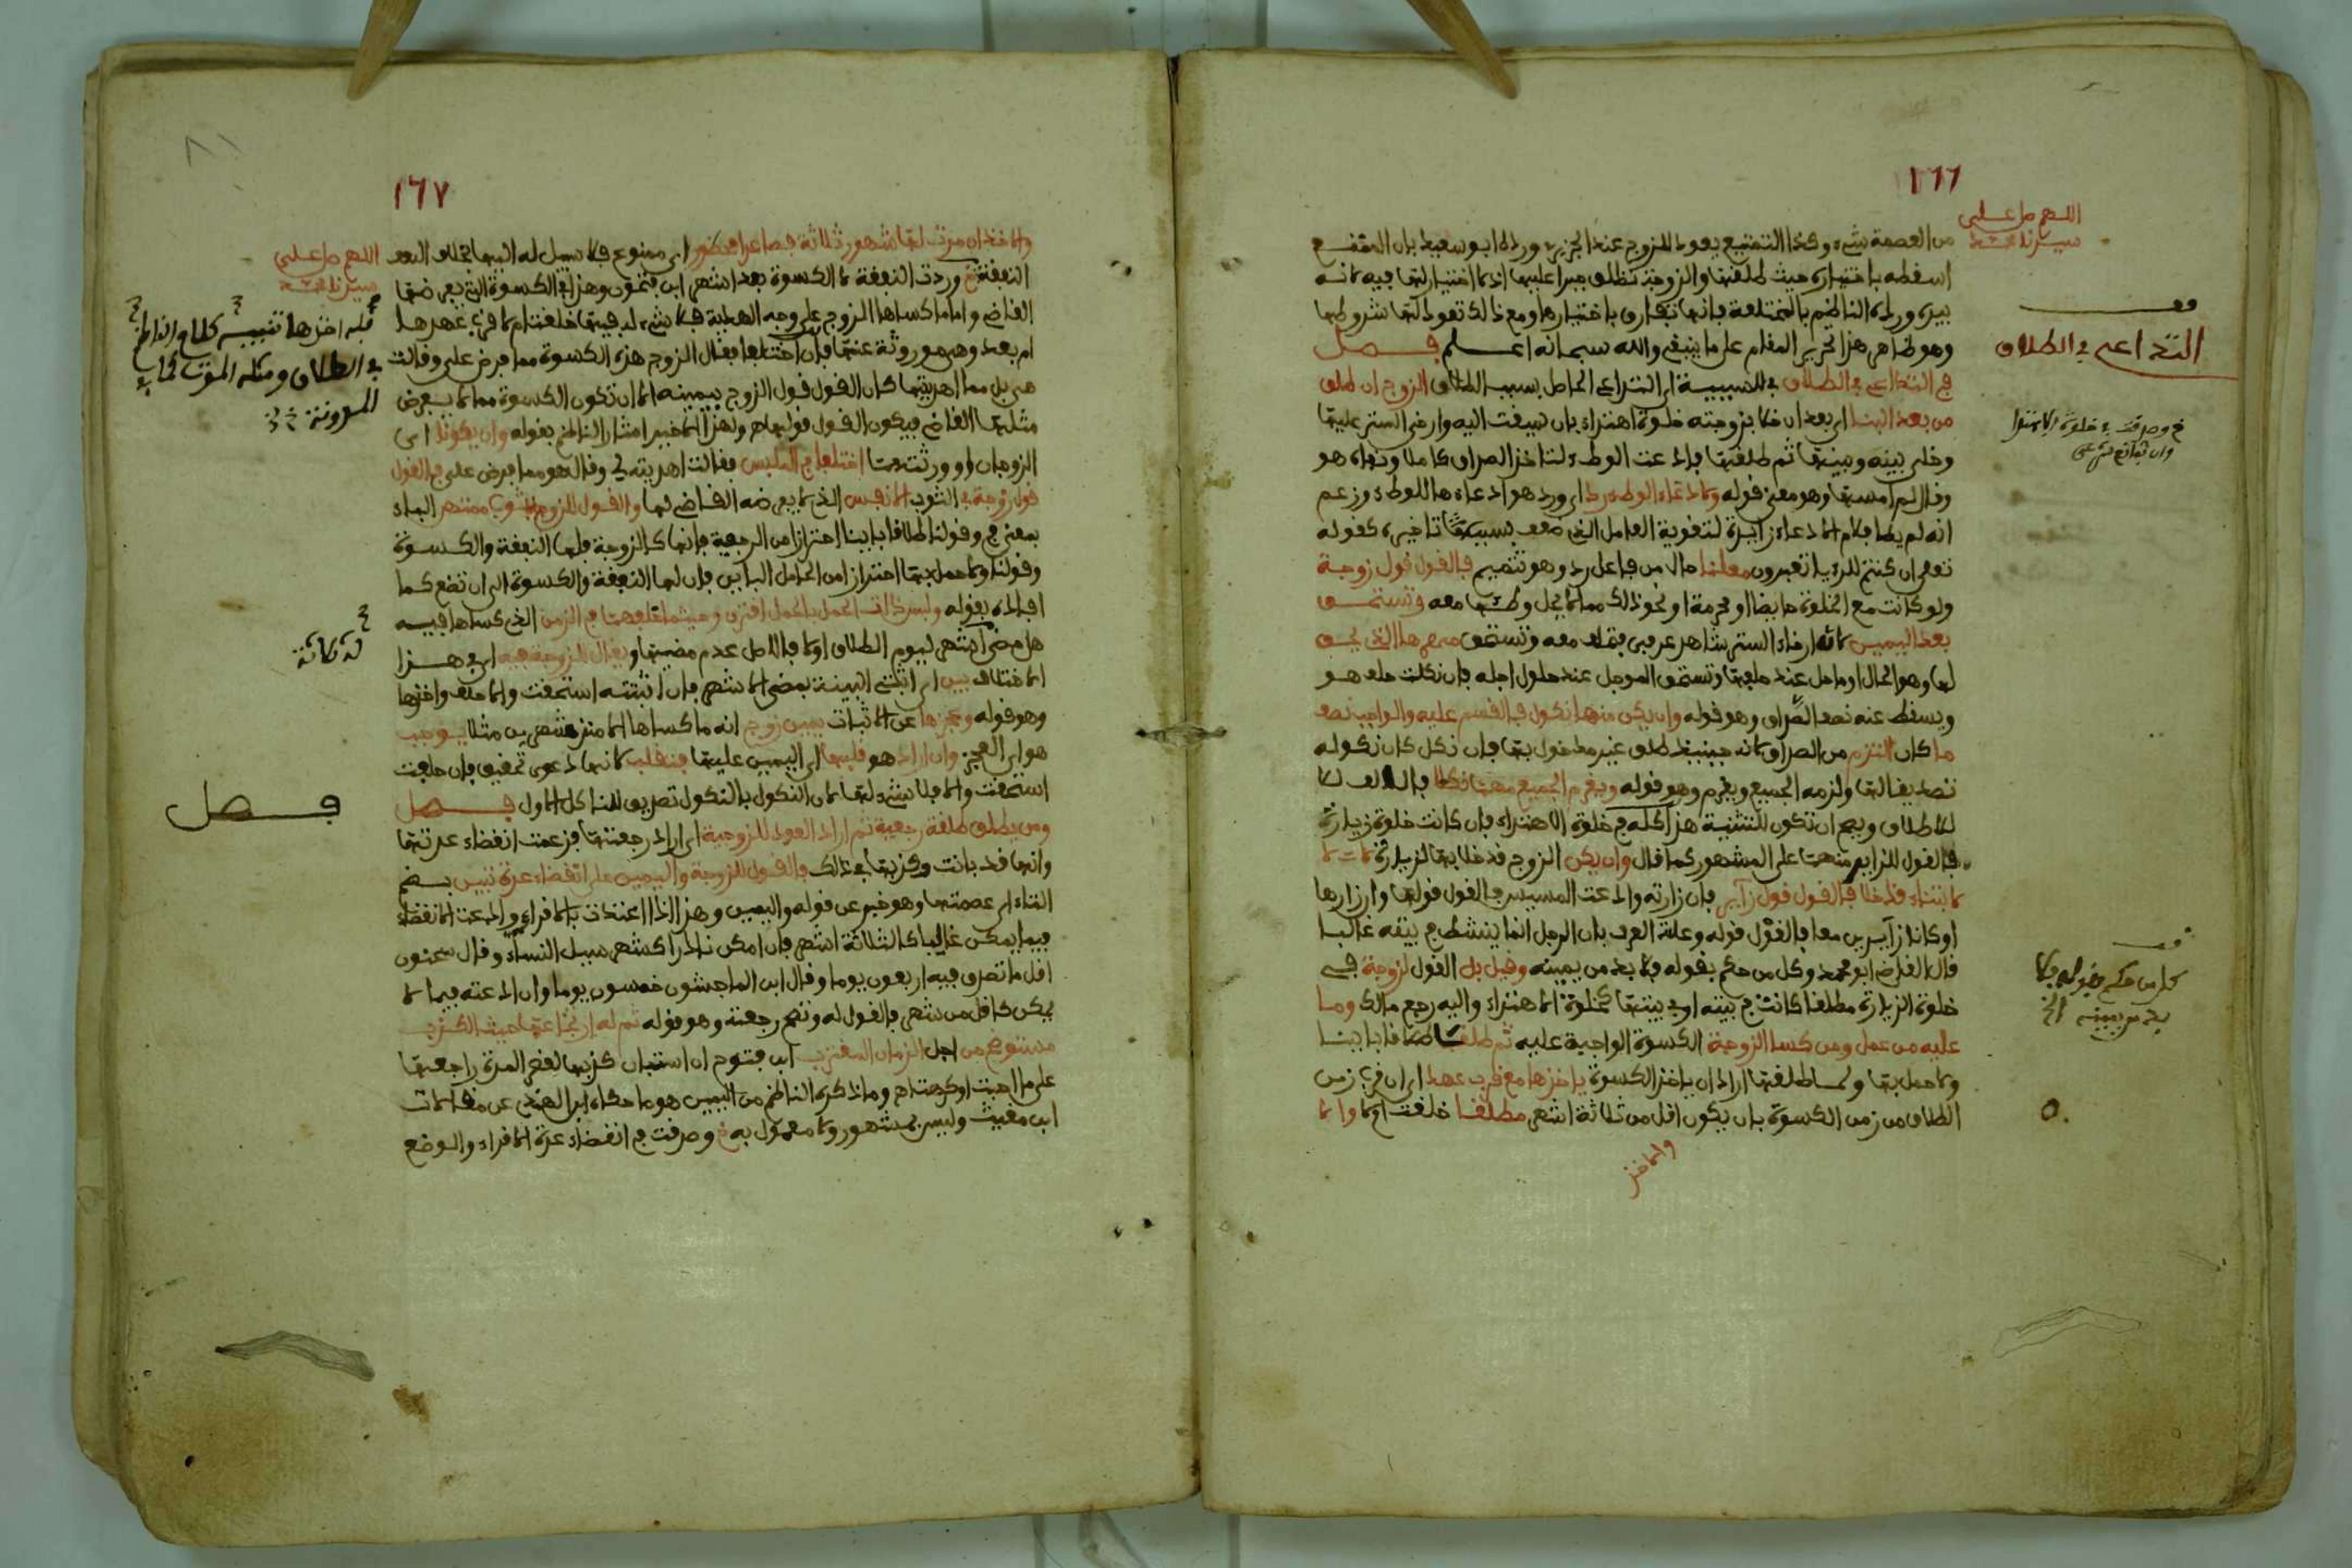 ١٦٦
اللهم صل على
سيدنا محمد
من العصمة شيء وكذا التمتيع يعود للزوج عند الجزيري ورده ابو سعيد بان التمتيع
اسقطه باختياره حيث طلقها والزوجة تطلق جبرا عليها اذ لا اختيار لها فيه لانه
بيده ورده الناظم بالمختلعة فانها تفارق باختيارها ومع ذلك تعود لها شروطها
وهو ظاهر هذا تحرير المقام على ما ينبغي والله سبحانه اعلم فصل
في التداعي في الطلاق في للسببية اي التداعي الحاصل بسبب الطلاق الزوج ان طلق
من بعد البنا اي بعد ان خلا بزوجته خلوة اهتداء بان سيقت اليه وارخي الستر عليها
وخلي بينه وبينها ثم طلقها فادعت الوطء لتاخذ الصداق كاملا ونفاه هو
وقال لم امسها وهو معنى قوله ولادعاء الوطء رد اي ورد هو ادعاءها للوطء وزعم
انه لم يطا فلام لادعاء زايدة لتقوية العامل الذي ضعف بسبب تاخيره كقوله
تعلى ان كنتم للرءيا تعبرون معلنا حال من فاعل رد وهو تتميم فالقول قول زوجة
ولو كانت مع الخلوة حايضا او محرمة او نحو ذلك مما لا يحل وطئها معه وتستحق
بعد اليمين لان ارخاء الستر شاهد عرفي فتحلف معه وتستحق مهرها الذي يحق
لها وهو الحال او ما حل عند حلفها وتستحق الموجل عند حلول اجله فان نكلت حلف هو
ويسقط عنه نصف الصداق وهو قوله وان يكن منها نكول فالقسم عليه والواجب نصف
ما كان التزم من الصداق لانه حينئذ طلق غير مدخول بها فان نكل كان نكوله
تصديقا لها ولزمه الجميع ويغرم وهو قوله ويغرم الجميع مهما نكلا فالالف
للاطلاق ويصح ان تكون للتثنية هذا كله في خلوة الاهتداء فان كانت خلوة زيارة
فالقول للزاير منهما على المشهور كما قال وان يكن الزوج قد خلا بها لزيارة لا
لابتناء قد خلا فالقول قول زاير فان زارته وادعت المسيس فالقول قولها وان زارها
او كانا زايرين معا فالقول قوله وعلة العرف بان الرجل انما ينشط في بيته غالبا
قال القاضي ابو محمد وكل من حكم بقوله فلا بد من يمينه وقيل بل القول لزوجة في
خلوة الزيارة مطلقا كانت في بيته او في بيتها كخلوة الاهتداء واليه رجع مالك وما
عليه من عمل ومن كسا الزوجة الكسوة الواجبة عليه ثم طلقا طلاقا باينا
ولا حمل بها ولما طلقها اراد ان ياخذ الكسوة ياخذها مع قرب عهد اي ان قرب زمن
الطلاق من زمن الكسوة بان يكون اقل من ثلاثة اشهر مطلقا خلقت ام لا والا
والاخذ
قف
التداعي في الطلاق
خ وصدقت في خلوة الاهتدا
وان بمانع شرعي
قف
كل من حكم بقوله فلا
بد من يمينه الخ
١٦٧
اللهم صل على
سيدنا محمد
والاخذ ان مرت لها شهور ثلاثة فصاعدا محظور اي ممنوع فلا سبيل له اليها بخلاف
النفقة خ وردت النفقة لا الكسوة بعد اشهر ابن فتحون وهذا في الكسوة التي يفرضها
القاضي واما ما كساها الزوج على وجه الهدية فلا شيء له فيها خلقت ام لا قرب عهدها
ام بعد وهي موروثة عنها فان اختلفا فقال الزوج هذه الكسوة مما فرض علي وقالت
هي بل مما اهديتها كان القول قول الزوج بيمينه الا ان تكون الكسوة مما لا يفرض
مثلها القاضي فيكون القول قولها ولهذا الاخير اشار الناظم بقوله وان يكونا اي
الزوجان او ورثتهما اختلفا في الملبس فقالت اهديته لي وقال هو مما فرض علي فالقول
قول زوجة في الثوب الانفس الذي لا يفرضه القاضي لها والقول للزوج بثوب ممتهن الباء
بمعنى في وقولنا طلاقا باينا احترازا من الرجعية فانها كالزوجة فلها النفقة والكسوة
وقولنا ولا حمل بها احترازا من الحامل الباين فان لها النفقة والكسوة الى ان تضع كما
افاده بقوله وليس ذات الحمل بالحمل اقترن وحيثما خلفهما في الزمن الذي كساها فيه
هل مضى اشهر ليوم الطلاق او لا فالاصل عدم مضيها ويقال للزوجة فيه اي في هذا
الاختلاف بيني اي اثبتي البينة بمضي الاشهر فان اثبتته استحقت والا حلف واخذها
وهو قوله وعجزها عن الاثبات يمين زوج انه ما كساها الا منذ شهرين مثلا يوجب
هو اي العجز وان اراد هو قلبها اي اليمين عليها فتنقلب لانها دعوى تحقيق فان حلفت
استحقت والا فلا شيء لها لان النكول بالنكول تصديق للناكل الاول فصل
ومن يطلق طلقة رجعية ثم اراد العود للزوجية اي اراد رجعتها فزعمت انقضاء عدتها
وانها قد بانت وكذبها في ذلك فالقول للزوجة واليمين على انقضاء عدة تبين بضم
التاء اي عصمتها وهو خبر عن قوله واليمين وهذا اذا اعتدت بالاقراء وادعت الانقضاء
فيما يمكن غالبا كالثلاثة اشهر فان امكن نادرا كشهر سيل النساء وقال سحنون
اقل ما تصدق فيه اربعون يوما وقال ابن الماجشون خمسون يوما وان ادعته فيما لا
يمكن كاقل من شهر فالقول له وتصح رجعته وهو قوله ثم له ارتجاعها حيث الكذب
مستوضح من اجل الزمان المقترب ابن فتوح ان استبان كذبها لقصر المدة راجعها
على ما احبت او كرهت اه وما ذكره الناظم من اليمين هو ما حكاه ابن الهندي عن
ابن مغيث وليس بمشهور ولا معمول به خ وصدقت في انقضاء عدة الاقراء والوضع
قبله اخذها تنبيه كلام الناظم
في الطلاق ومثله الموت كما في
المدونة
فصل